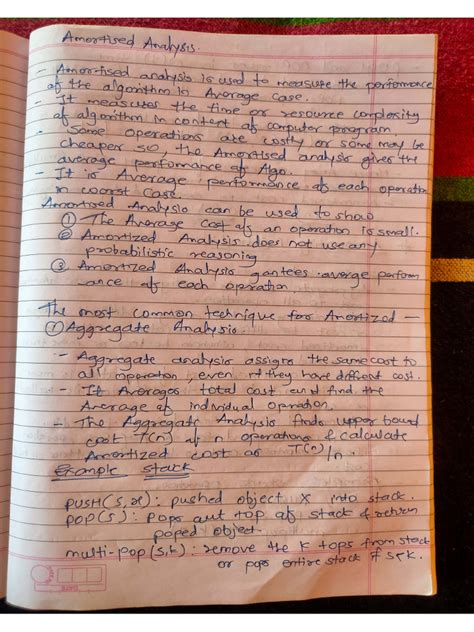 Amortised Analysis.
- Amortised analysis is used to measure the performance
of the algorithm in Average Case.
- It measures the time or resource complexity
of algorithm in context of computer program
- Some operations are costly or some may be
cheaper so, the Amortised analysis gives the
average performance of Algo.
- It is Average performance of each operation
in worst Case.
Amortised Analysis can be used to show
① The Average cost of an operation is small.
② Amortized Analysis does not use any
probabilistic reasoning
③ Amortized Analysis gantees averge perform
ance of each operation
The most common technique for Amortized —
① Aggregate Analysis.
- Aggregate analysis assigns the same cost to
all operation, even if they have diffent cost.
- It Averages total cost and find the
Average of individual operation.
- The Aggregate Analysis finds upper bound
cost T(n) of n operations & calculate
Amortized cost as T(n)/n.
Example stack
PUSH(S,x): pushed object X into stack.
POP(S): Pops out top of stack & return
poped object.
multi-pop(S,k): remove the K tops from stack
or pops entire stack if s<k.